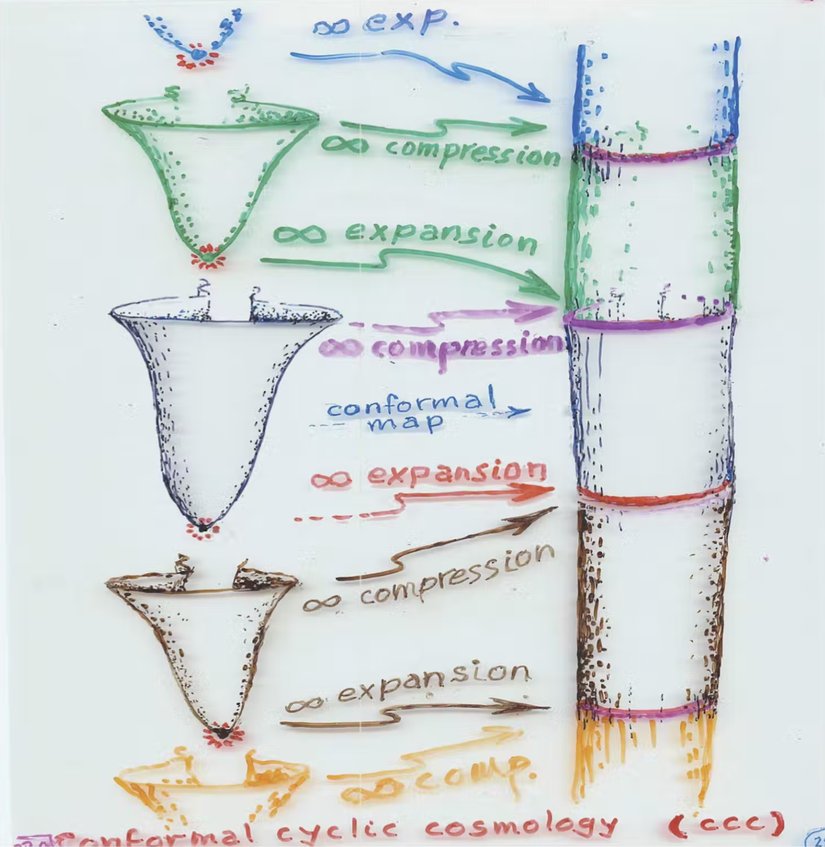 ∞ exp.
∞ compression
∞ expansion
∞ compression
conformal
map
∞ expansion
∞ compression
∞ expansion
∞ comp.
Conformal cyclic cosmology (ccc)